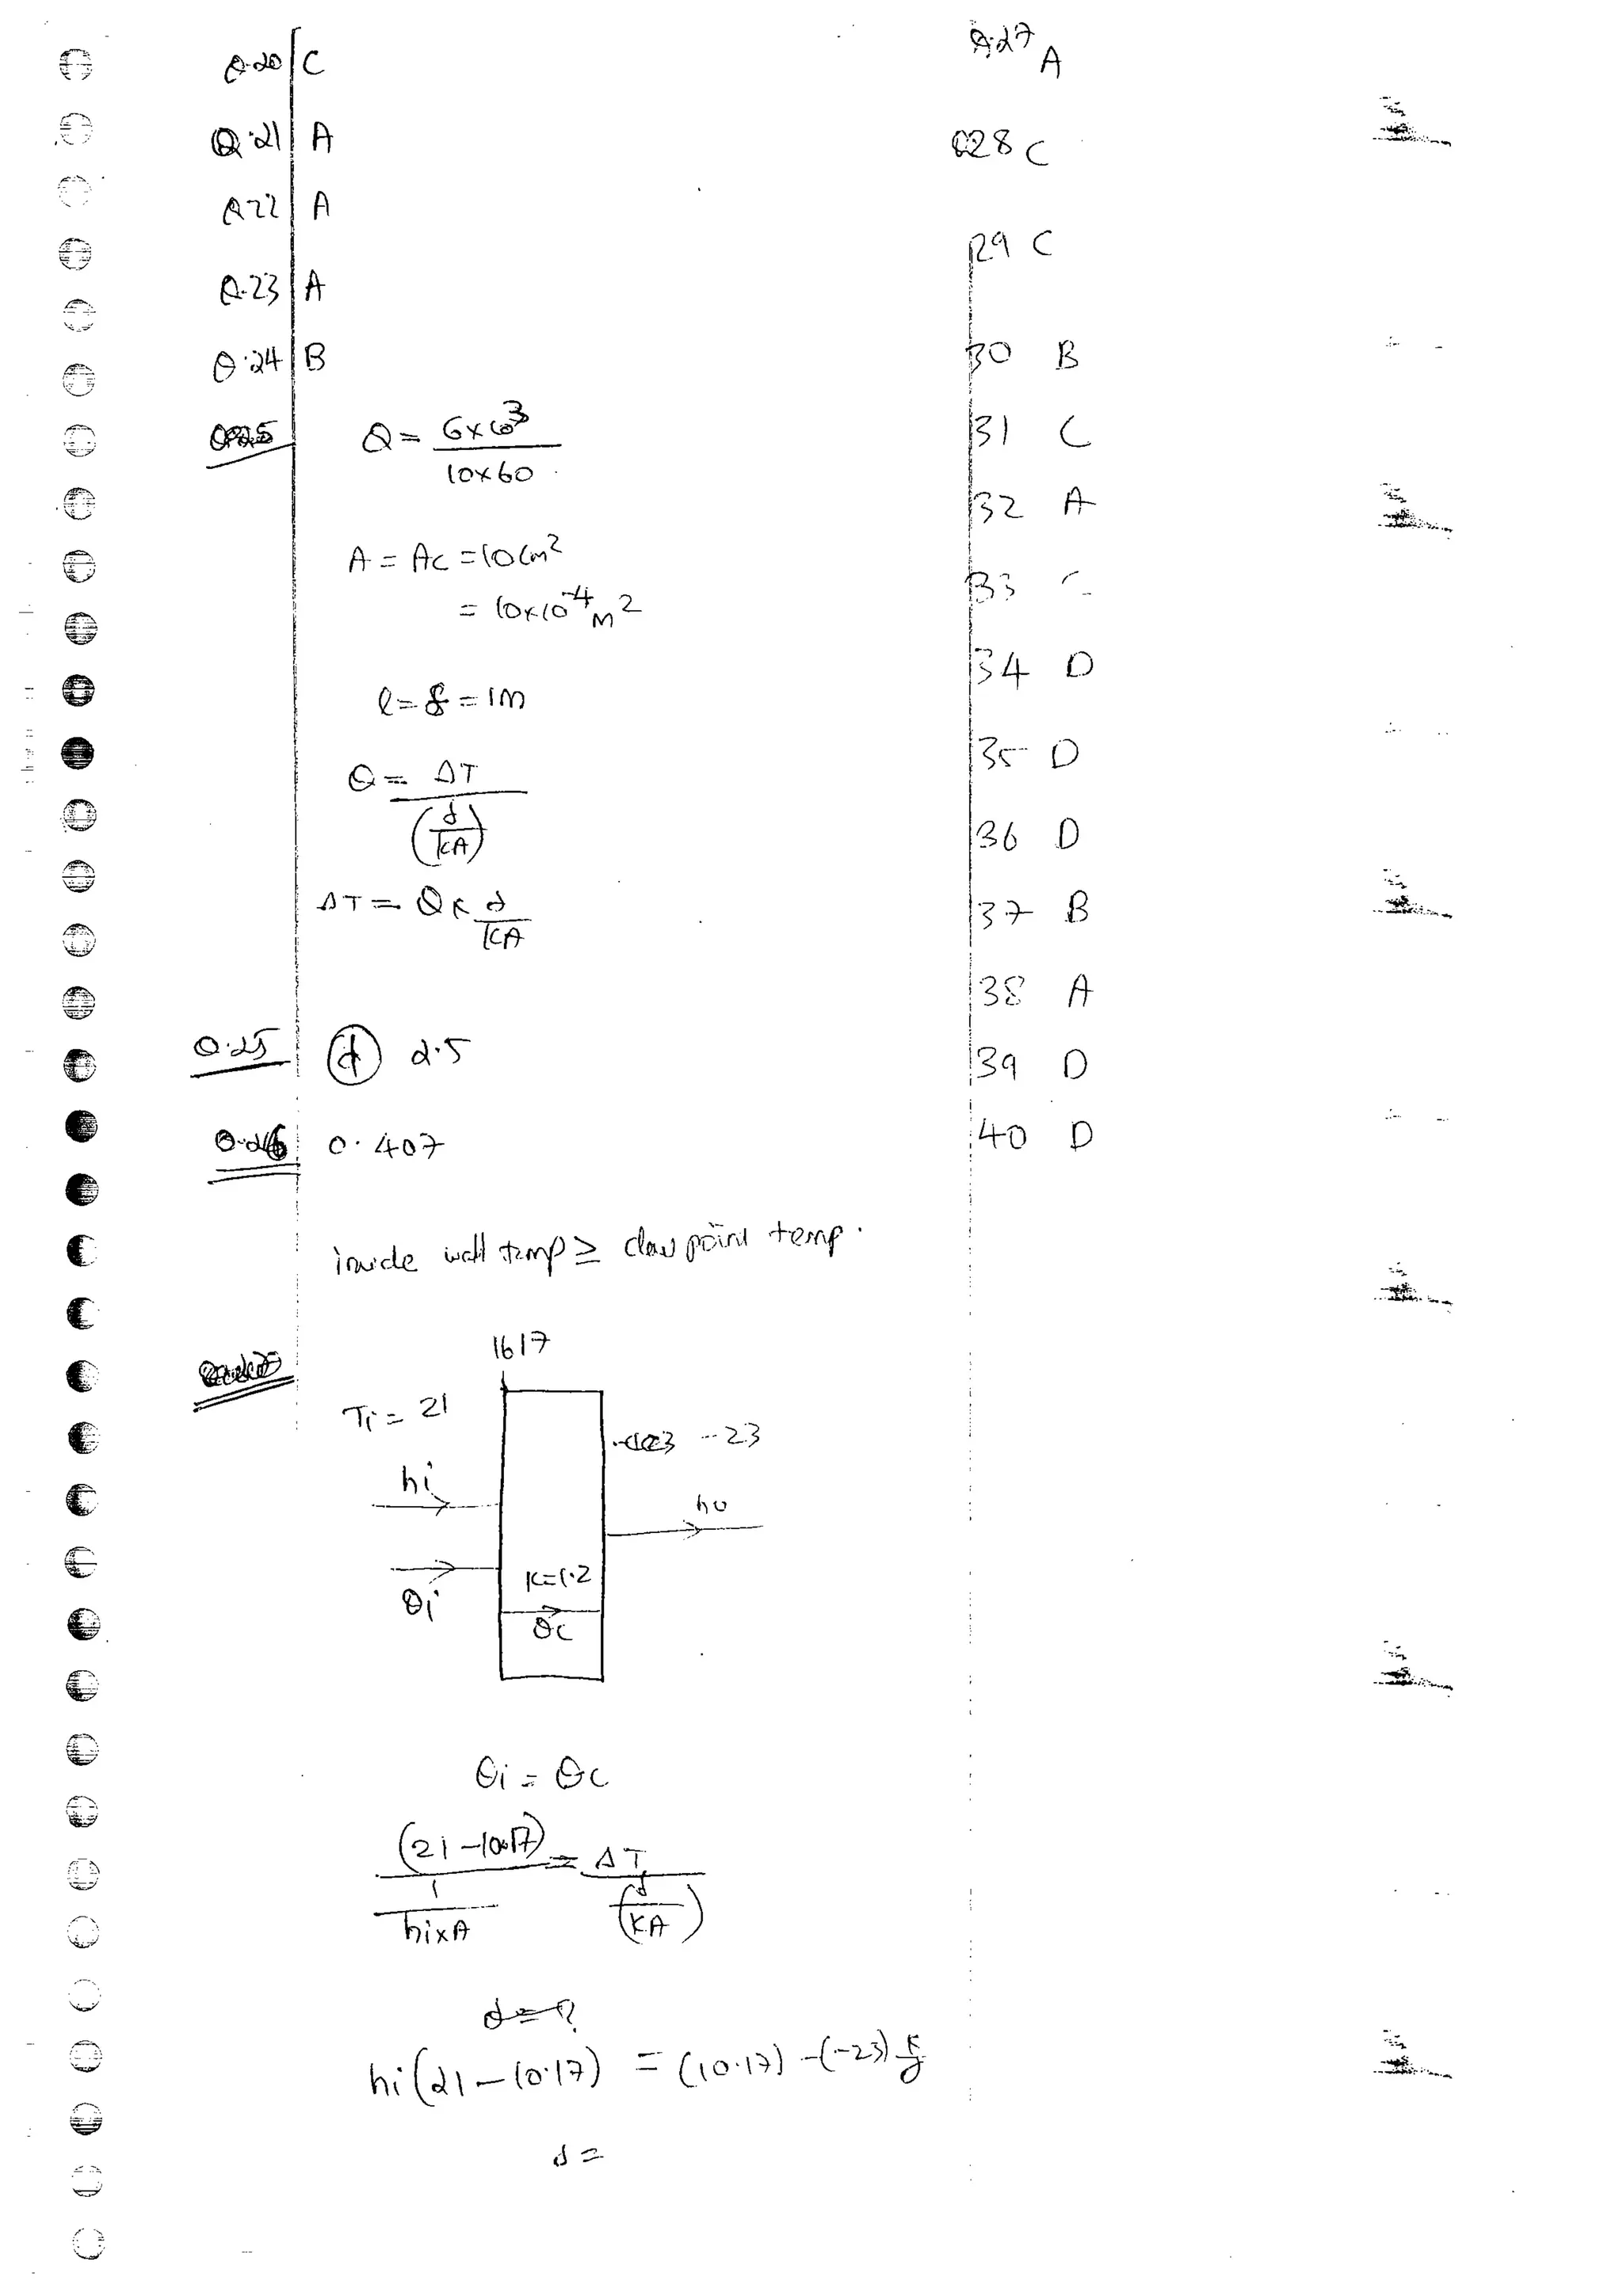 Q.20 C
Q.21 A
Q22 A
Q.23 A
Q.24 B
Q = 6x10³
10x60
A = Ac = 10cm²
= 10x10⁻⁴m²
l = δ = 1m
Q = ΔT
(δ/KA)
ΔT = Q x δ
KA
Q.25 (d) 2.5
Q.26 0.407
inside wall temp ≥ dew point temp.
Ti = 21
-23
hi
ho
Qi
K=1.2
Qc
Qi = Qc
(21-10.17) = ΔT
1 (δ
hixA KA)
δ=?
hi(21-10.17) = (10.17)-(-23) K/δ
δ =
Q.27 A
Q28 C
29 C
30 B
31 C
32 A
33 C
34 D
35 D
36 D
37 B
38 A
39 D
40 D